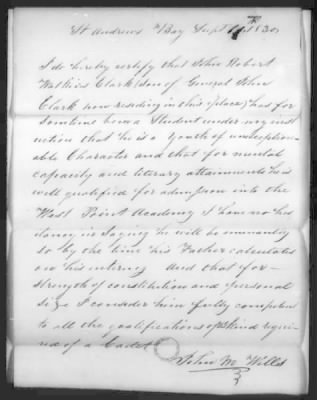 St Andrews Bay Sept 1830
I do hereby certify that John Robert
Watkins Clark (son of General John
Clark now residing in this place) has for
sometime been a Student under my inst
ruction that he is a youth of unexception-
able Character and that for mental
capacity and literary attainments he is
well qualified for admission into the
West Point Academy I have no hes
itancy in saying he will be
so by the time his Father calculates
on his entering and that for
strength of constitution and personal
size I consider him fully competent
to all the qualifications of kind requi-
red of a Cadet
John M Wills